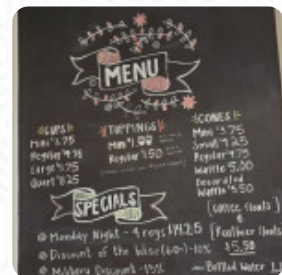 MENU
CUPS
Mini $3.75
Regular 4.75
Large 5.75
Quart 8.25
TOPPINGS
Mini $1.00
Regular 1.50
CONES
Mini $3.75
Small 4.25
Regular 4.75
Waffle 5.00
Decorated
Waffle 5.50
SPECIALS
Monday Night - 4 regs $14.25
Discount of the Wiser (60+) - 10%
Military Discount - 15%
(Coffee floats)
(Rootbeer floats
$5.50
Bottled Water